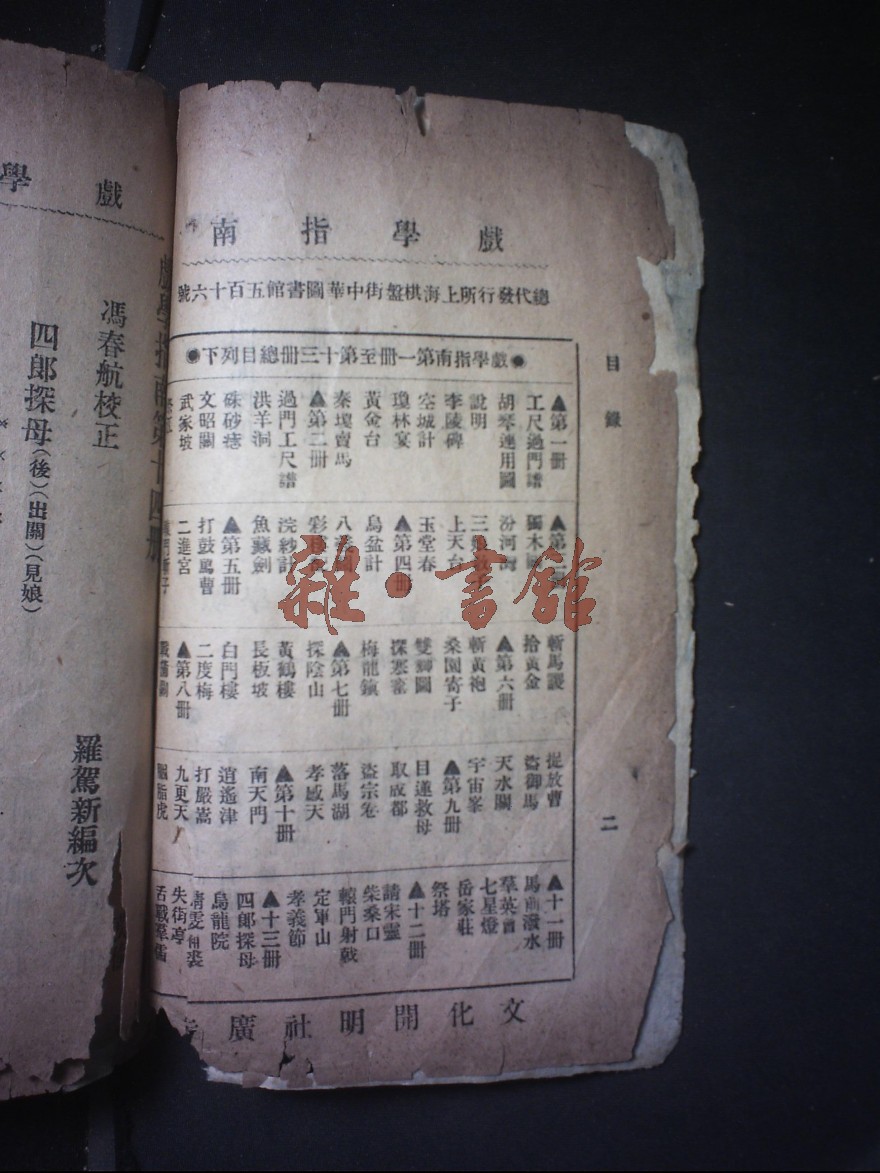 戲學指南
總代發行所上海棋盤街中華圖書館五百十六號
●戲學指南第一册至第十三册總目列下●
目錄
二
▲第一册
工尺過門譜
胡琴運用圖
說明
李陵碑
空城計
瓊林宴
黃金台
秦瓊賣馬
▲第二册
過門工尺譜
洪羊洞
硃砂痣
文昭關
武家坡
▲第三册
獨木關
汾河灣
三娘教子
上天台
玉堂春
▲第四册
烏盆計
浣紗計
魚藏劍
▲第五册
打鼓罵曹
二進宮
斬馬謖
拾黃金
▲第六册
斬黃袍
桑園寄子
雙獅圖
探寒窰
梅龍鎮
▲第七册
探陰山
黃鶴樓
長板坡
白門樓
二度梅
▲第八册
捉放曹
盜御馬
天水關
宇宙峯
▲第九册
目蓮救母
取成都
盜宗卷
落馬湖
孝感天
▲第十册
南天門
逍遙津
打嚴嵩
九更天
胭脂虎
▲十一册
馬前潑水
羣英會
七星燈
岳家莊
祭塔
▲十二册
請宋靈
柴桑口
轅門射戟
定軍山
孝義節
▲十三册
四郎探母
烏龍院
晴雯補裘
失街亭
舌戰羣儒
文化開明社廣告
戲學
戲學指南第十四册
馮春航校正
四郎探母(後)(出關)(見娘)
羅駕新編次
雜·書館